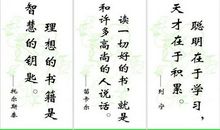 理想的书籍是
智慧的钥匙。
——托尔斯泰
读一切好的书，就是
和许多高尚的人说话。
——笛卡尔
聪明在于学习，
天才在于积累。
——列宁